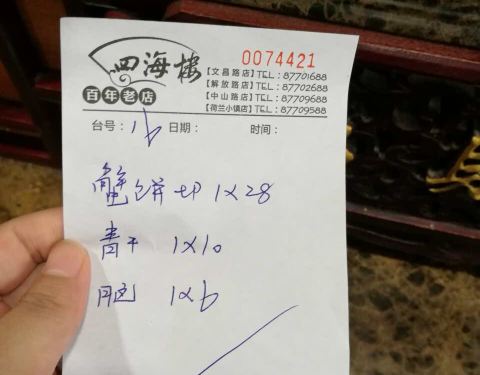 四海楼
0074421
【文昌路店】TEL:87701688
【解放路店】TEL:87702688
【中山路店】TEL:87709688
【荷兰小镇店】TEL:87709588
百年老店
台号:16 日期: 时间:
蟹饼 1×28
青干 1×10
1×6